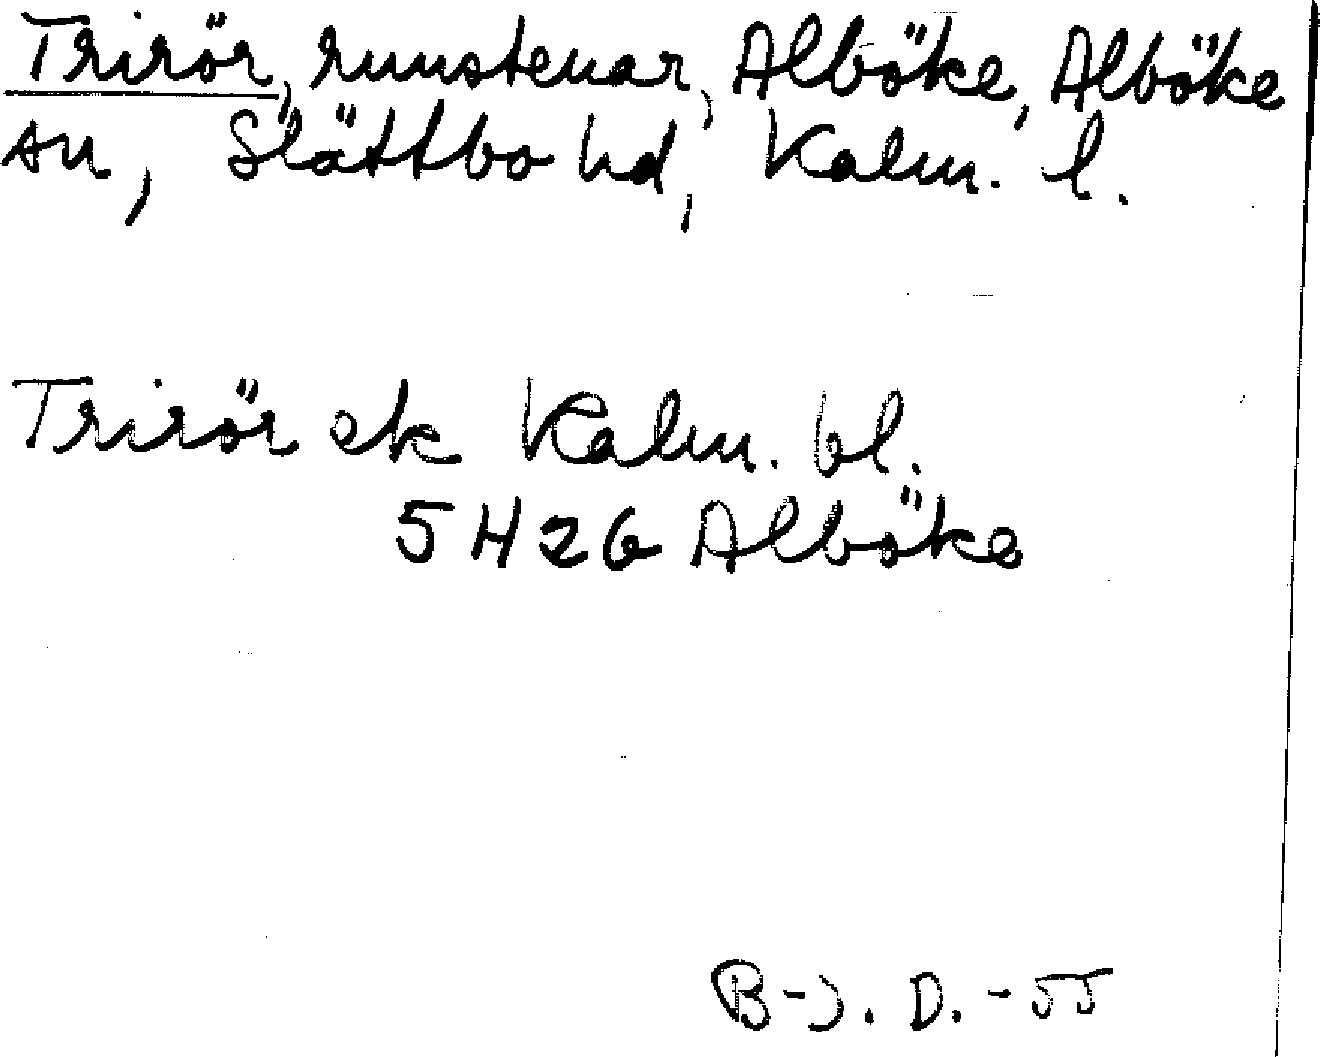 Trirör, runstenar, Alböke, Alböke
sn, Slättbo hd, Kalm. l.
Trirör ek Kalm. bl.
5 H 2 G Alböke
B-J. D. -55